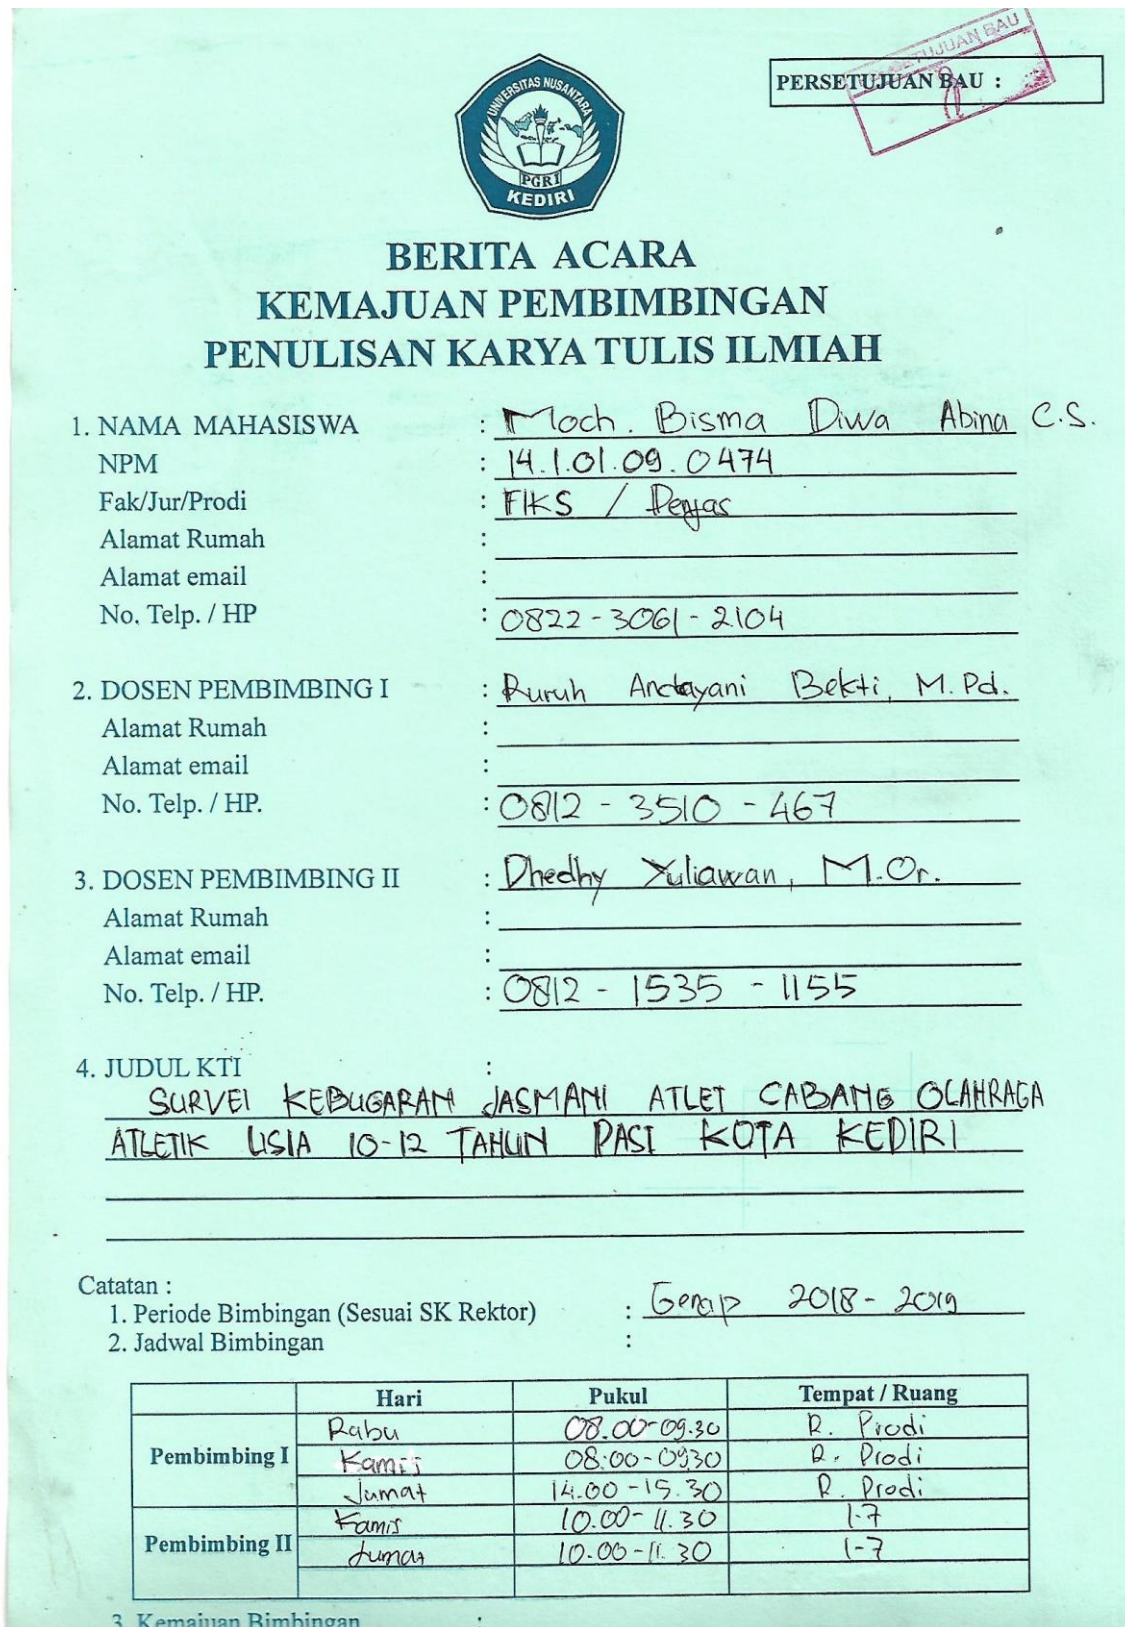 SETUJUAN BAU
PERSETUJUAN BAU :
UNIVERSITAS NUSANTARA
PGRI
KEDIRI
BERITA ACARA
KEMAJUAN PEMBIMBINGAN
PENULISAN KARYA TULIS ILMIAH
1. NAMA MAHASISWA : Moch. Bisma Diwa Abina C.S.
NPM : 14.1.01.09.0474
Fak/Jur/Prodi : FIKS / Penjas
Alamat Rumah :
Alamat email :
No. Telp. / HP : 0822-3061-2104
2. DOSEN PEMBIMBING I : Ruruh Andayani Bekti, M.Pd.
Alamat Rumah :
Alamat email :
No. Telp. / HP. : 0812 - 3510 - 467
3. DOSEN PEMBIMBING II : Dhedhy Yuliawan, M.Or.
Alamat Rumah :
Alamat email :
No. Telp. / HP. : 0812 - 1535 - 1155
4. JUDUL KTI :
SURVEI KEBUGARAN JASMANI ATLET CABANG OLAHRAGA
ATLETIK USIA 10-12 TAHUN PASI KOTA KEDIRI
Catatan :
1. Periode Bimbingan (Sesuai SK Rektor) : Genap 2018 - 2019
2. Jadwal Bimbingan :
Hari Pukul Tempat / Ruang
Pembimbing I
Rabu 08.00-09.30 R. Prodi
Kamis 08:00-0930 R. Prodi
Jumat 14.00-15.30 R. Prodi
Pembimbing II
Kamis 10.00-11.30 1-7
Jumat 10.00-11.30 1-7
3. Kemajuan Bimbingan :